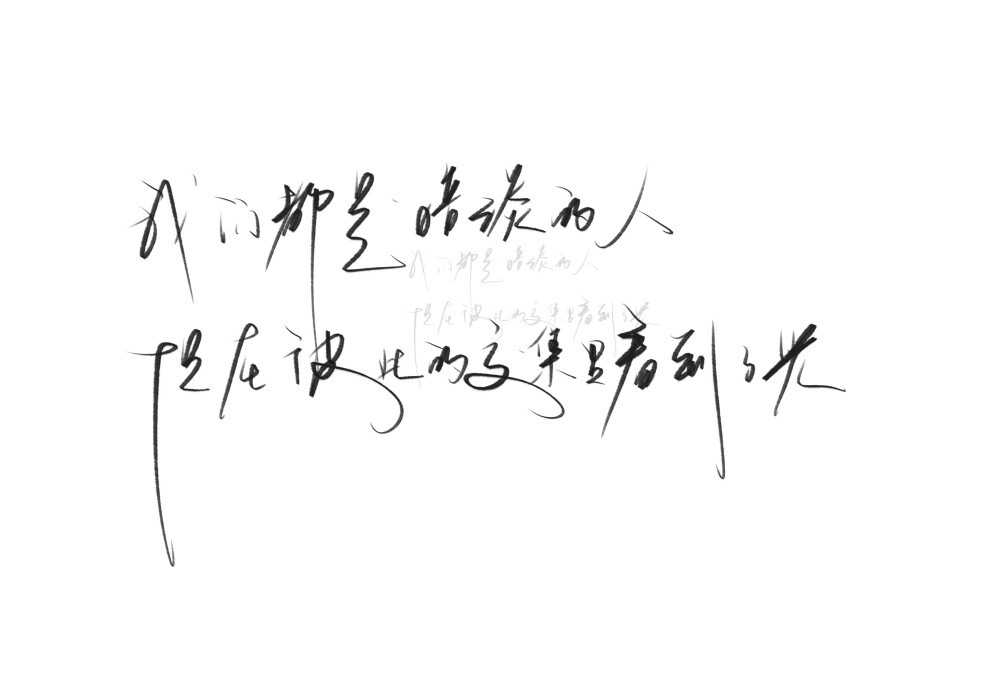 我们都是暗淡的人
但在彼此的交集里看到了光
我们都是暗淡的人
但在彼此的交集里看到了光